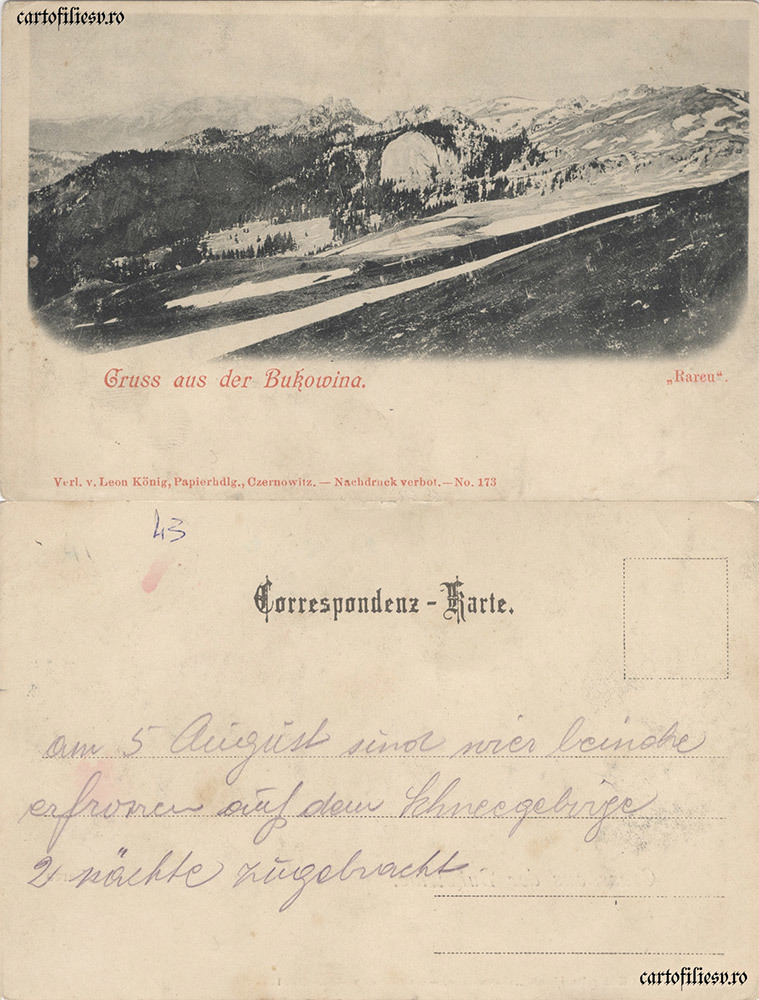 cartofiliesv.ro
Gruss aus der Bukowina.
„Rareu“.
Verl. v. Leon König, Papierhdlg., Czernowitz. — Nachdruck verbot. — No. 173
43
Correspondenz-Karte.
am 5 August sind wier beinahe
erfroren auf dem Schneegebirge
2 nächte zugebracht
cartofiliesv.ro